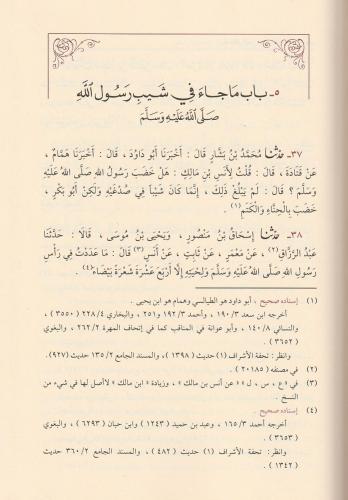 ٥ـ باب ما جاء في شيب رسول الله
صلى الله عليه وسلم
٣٧ـ حدثنا مُحَمَّدُ بْنُ بَشَّارٍ قَالَ : أَخْبَرَنَا أَبُو دَاوُدَ ، قَالَ : أَخْبَرَنَا هَمَّامٌ ،
عَنْ قَتَادَةَ ، قَالَ : قُلْتُ لِأَنَسِ بْنِ مَالِكٍ : هَلْ خَضَبَ رَسُولُ اللهِ صَلَّى اللهُ عَلَيْهِ
وَسَلَّمَ ؟ قَالَ : لَمْ يَبْلُغْ ذَلِكَ ، إِنَّمَا كَانَ شَيْبًا فِي صُدْغَيْهِ وَلَكِنْ أَبُو بَكْرٍ ،
خَضَبَ بِالْحِنَّاءِ وَالْكَتَمِ (١) .
٣٨ـ حدثنا إِسْحَاقُ بْنُ مَنْصُورٍ ، وَيَحْيَى بْنُ مُوسَى ، قَالَا : حَدَّثَنَا
عَبْدُ الرَّزَّاقِ (٢) ، عَنْ مَعْمَرٍ ، عَنْ ثَابِتٍ ، عَنْ أَنَسٍ (٣) قَالَ : مَا عَدَدْتُ فِي رَأْسِ
رَسُولِ اللهِ صَلَّى اللهُ عَلَيْهِ وَسَلَّمَ وَلِحْيَتِهِ إِلَّا أَرْبَعَ عَشْرَةَ شَعْرَةً بَيْضَاءَ (٤) .
(١) إسناده صحيح ، أبو داود هو الطيالسي وهمام هو ابن يحيى .
أخرجه ابن سعد ١٩٠/٣ ، وأحمد ١٩٢/٣ و٢٥١ ، والبخاري ٢٢٨/٤ ( ٣٥٥٠ )
والنسائي ١٤٠/٨ ، وأبو عوانة في المناقب كما في إتحاف المهرة ٢٦٢/٢ ، والبغوي
( ٣٦٥٢ )
وانظر : تحفة الأشراف (١) حديث ( ١٣٩٨ ) ، والمسند الجامع ١٣٥/٢ حديث (٩٢٧).
(٢) في مصنفه ( ٢٠١٨٥ ) .
(٣) في « ع ، س ، ل » : « عن أنس بن مالك » ، وزيادة « ابن مالك » لا أصل لها في شيء من
النسخ .
(٤) إسناده صحيح .
أخرجه أحمد ١٦٥/٣ ، وعبد بن حميد ( ١٢٤٣ ) وابن حبان ( ٦٢٩٣ ) ، والبغوي
( ٣٦٥٣ ) .
وانظر: تحفة الأشراف (١) حديث ( ٤٨٢ ) ، والمسند الجامع ٣٦٠/٢ حديث
( ١٣٤٢ ) .